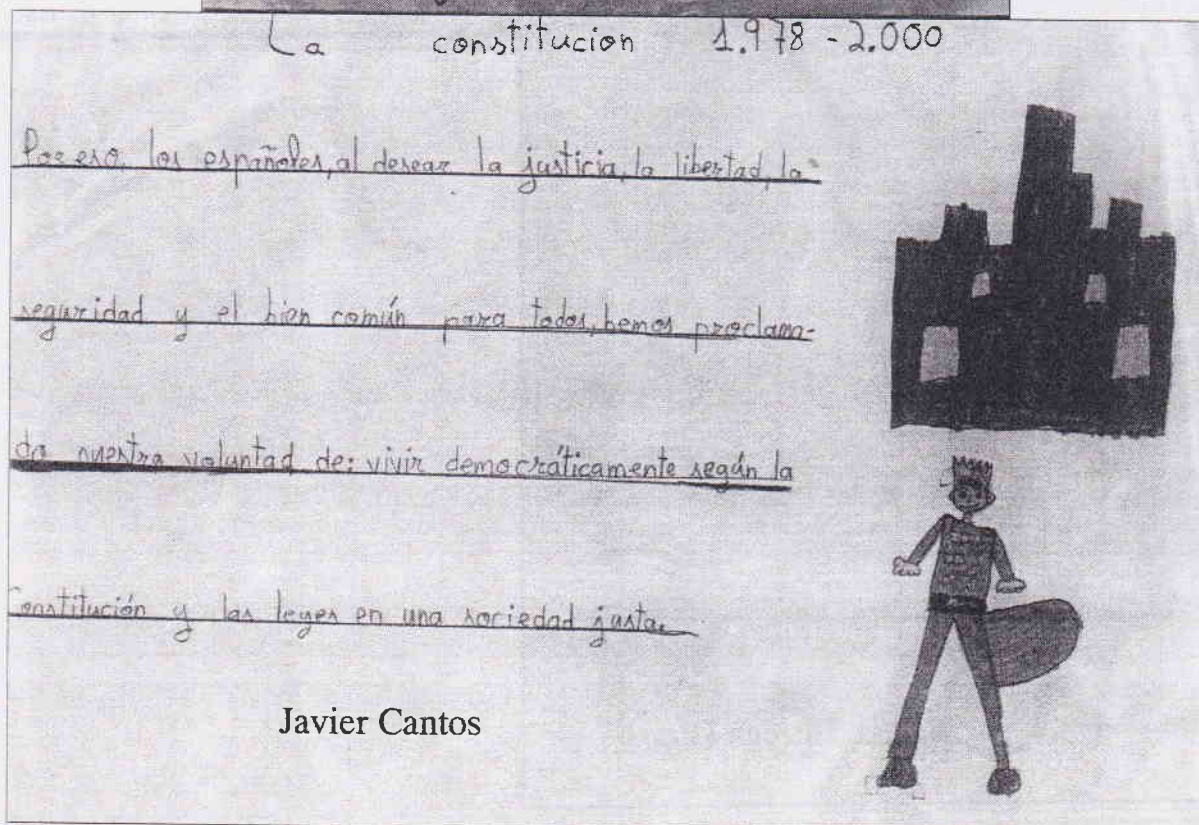 La constitucion 1.978 - 2.000
Por eso, los españoles, al desear la justicia, la libertad, la
seguridad y el bien común para todos, hemos proclama-
do nuestra voluntad de: vivir democráticamente según la
Constitución y las leyes en una sociedad justa.
Javier Cantos